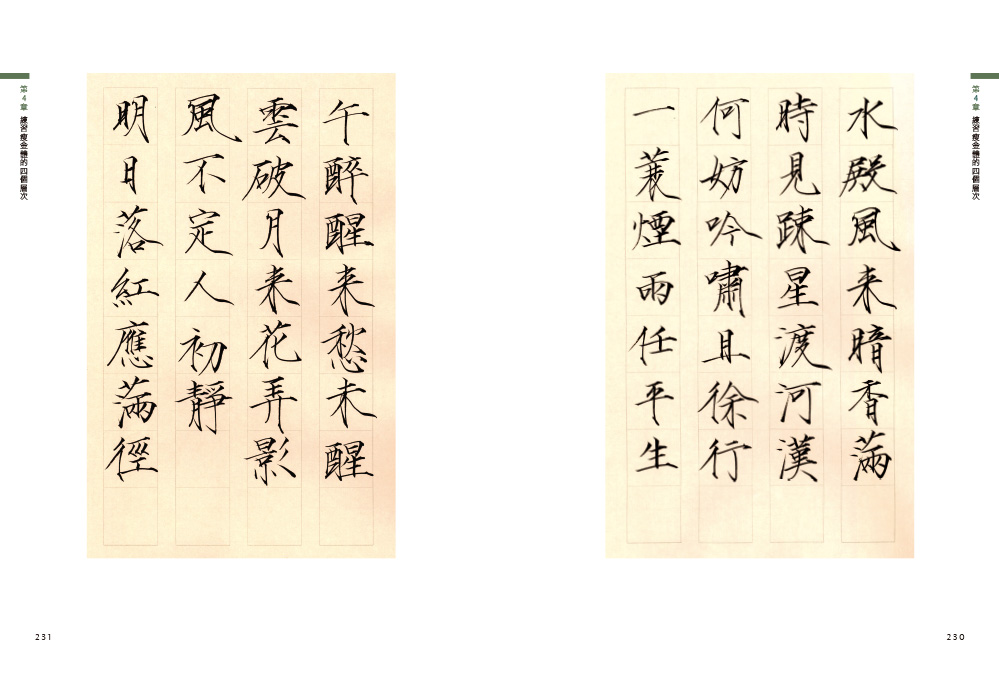 第4章 練習瘦金體的四個層次
水殿風来暗香滿
時見踈星渡河漢
何妨吟嘯且徐行
一蓑煙雨任平生
230
午醉醒来愁未醒
雲破月来花弄影
風不定人初靜
明日落紅應滿徑
第4章 練習瘦金體的四個層次
231